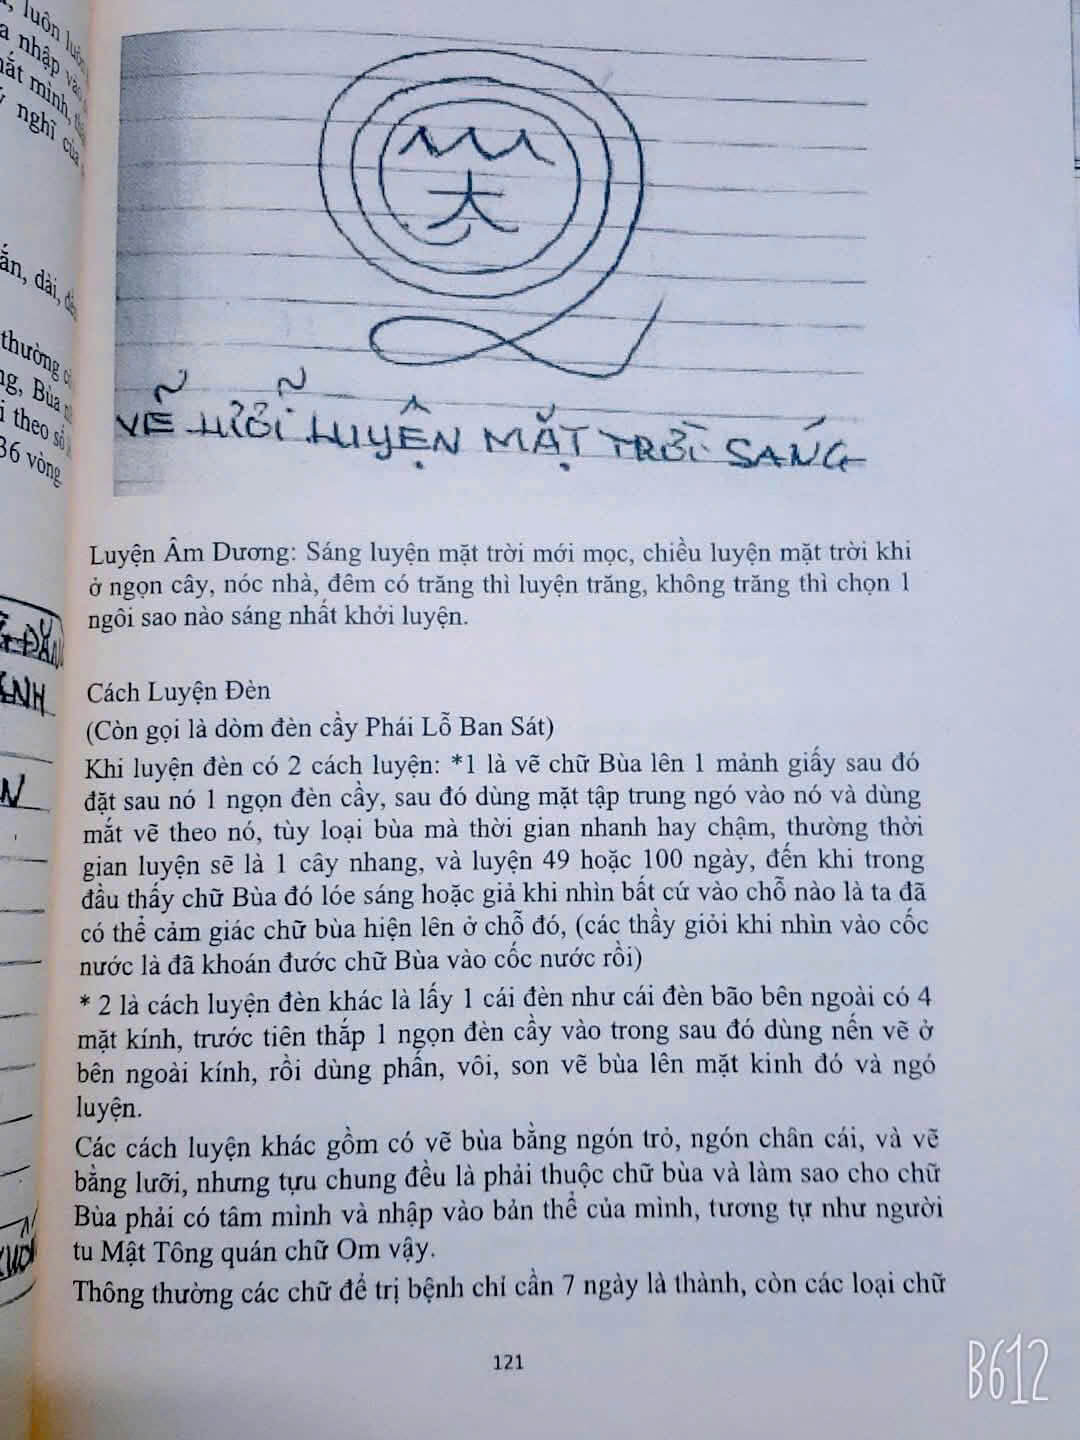 luôn luôn
nhập vào
mắt mình,
nghĩ của
dài,
thường
Bùa
theo số
36 vòng
VẼ LƯỠI LUYỆN MẶT TRỜI SÁNG
Luyện Âm Dương: Sáng luyện mặt trời mới mọc, chiều luyện mặt trời khi
ở ngọn cây, nóc nhà, đêm có trăng thì luyện trăng, không trăng thì chọn 1
ngôi sao nào sáng nhất khởi luyện.
Cách Luyện Đèn
(Còn gọi là dòm đèn cầy Phái Lỗ Ban Sát)
Khi luyện đèn có 2 cách luyện: *1 là vẽ chữ Bùa lên 1 mảnh giấy sau đó
đặt sau nó 1 ngọn đèn cầy, sau đó dùng mặt tập trung ngó vào nó và dùng
mắt vẽ theo nó, tùy loại bùa mà thời gian nhanh hay chậm, thường thời
gian luyện sẽ là 1 cây nhang, và luyện 49 hoặc 100 ngày, đến khi trong
đầu thấy chữ Bùa đó lóe sáng hoặc giả khi nhìn bất cứ vào chỗ nào là ta đã
có thể cảm giác chữ bùa hiện lên ở chỗ đó, (các thầy giỏi khi nhìn vào cốc
nước là đã khoán đước chữ Bùa vào cốc nước rồi)
* 2 là cách luyện đèn khác là lấy 1 cái đèn như cái đèn bão bên ngoài có 4
mặt kính, trước tiên thắp 1 ngọn đèn cầy vào trong sau đó dùng nến vẽ ở
bên ngoài kính, rồi dùng phấn, vôi, son vẽ bùa lên mặt kinh đó và ngó
luyện.
Các cách luyện khác gồm có vẽ bùa bằng ngón trỏ, ngón chân cái, và vẽ
bằng lưỡi, nhưng tựu chung đều là phải thuộc chữ bùa và làm sao cho chữ
Bùa phải có tâm mình và nhập vào bản thể của mình, tương tự như người
tu Mật Tông quán chữ Om vậy.
Thông thường các chữ để trị bệnh chỉ cần 7 ngày là thành, còn các loại chữ
121
B612